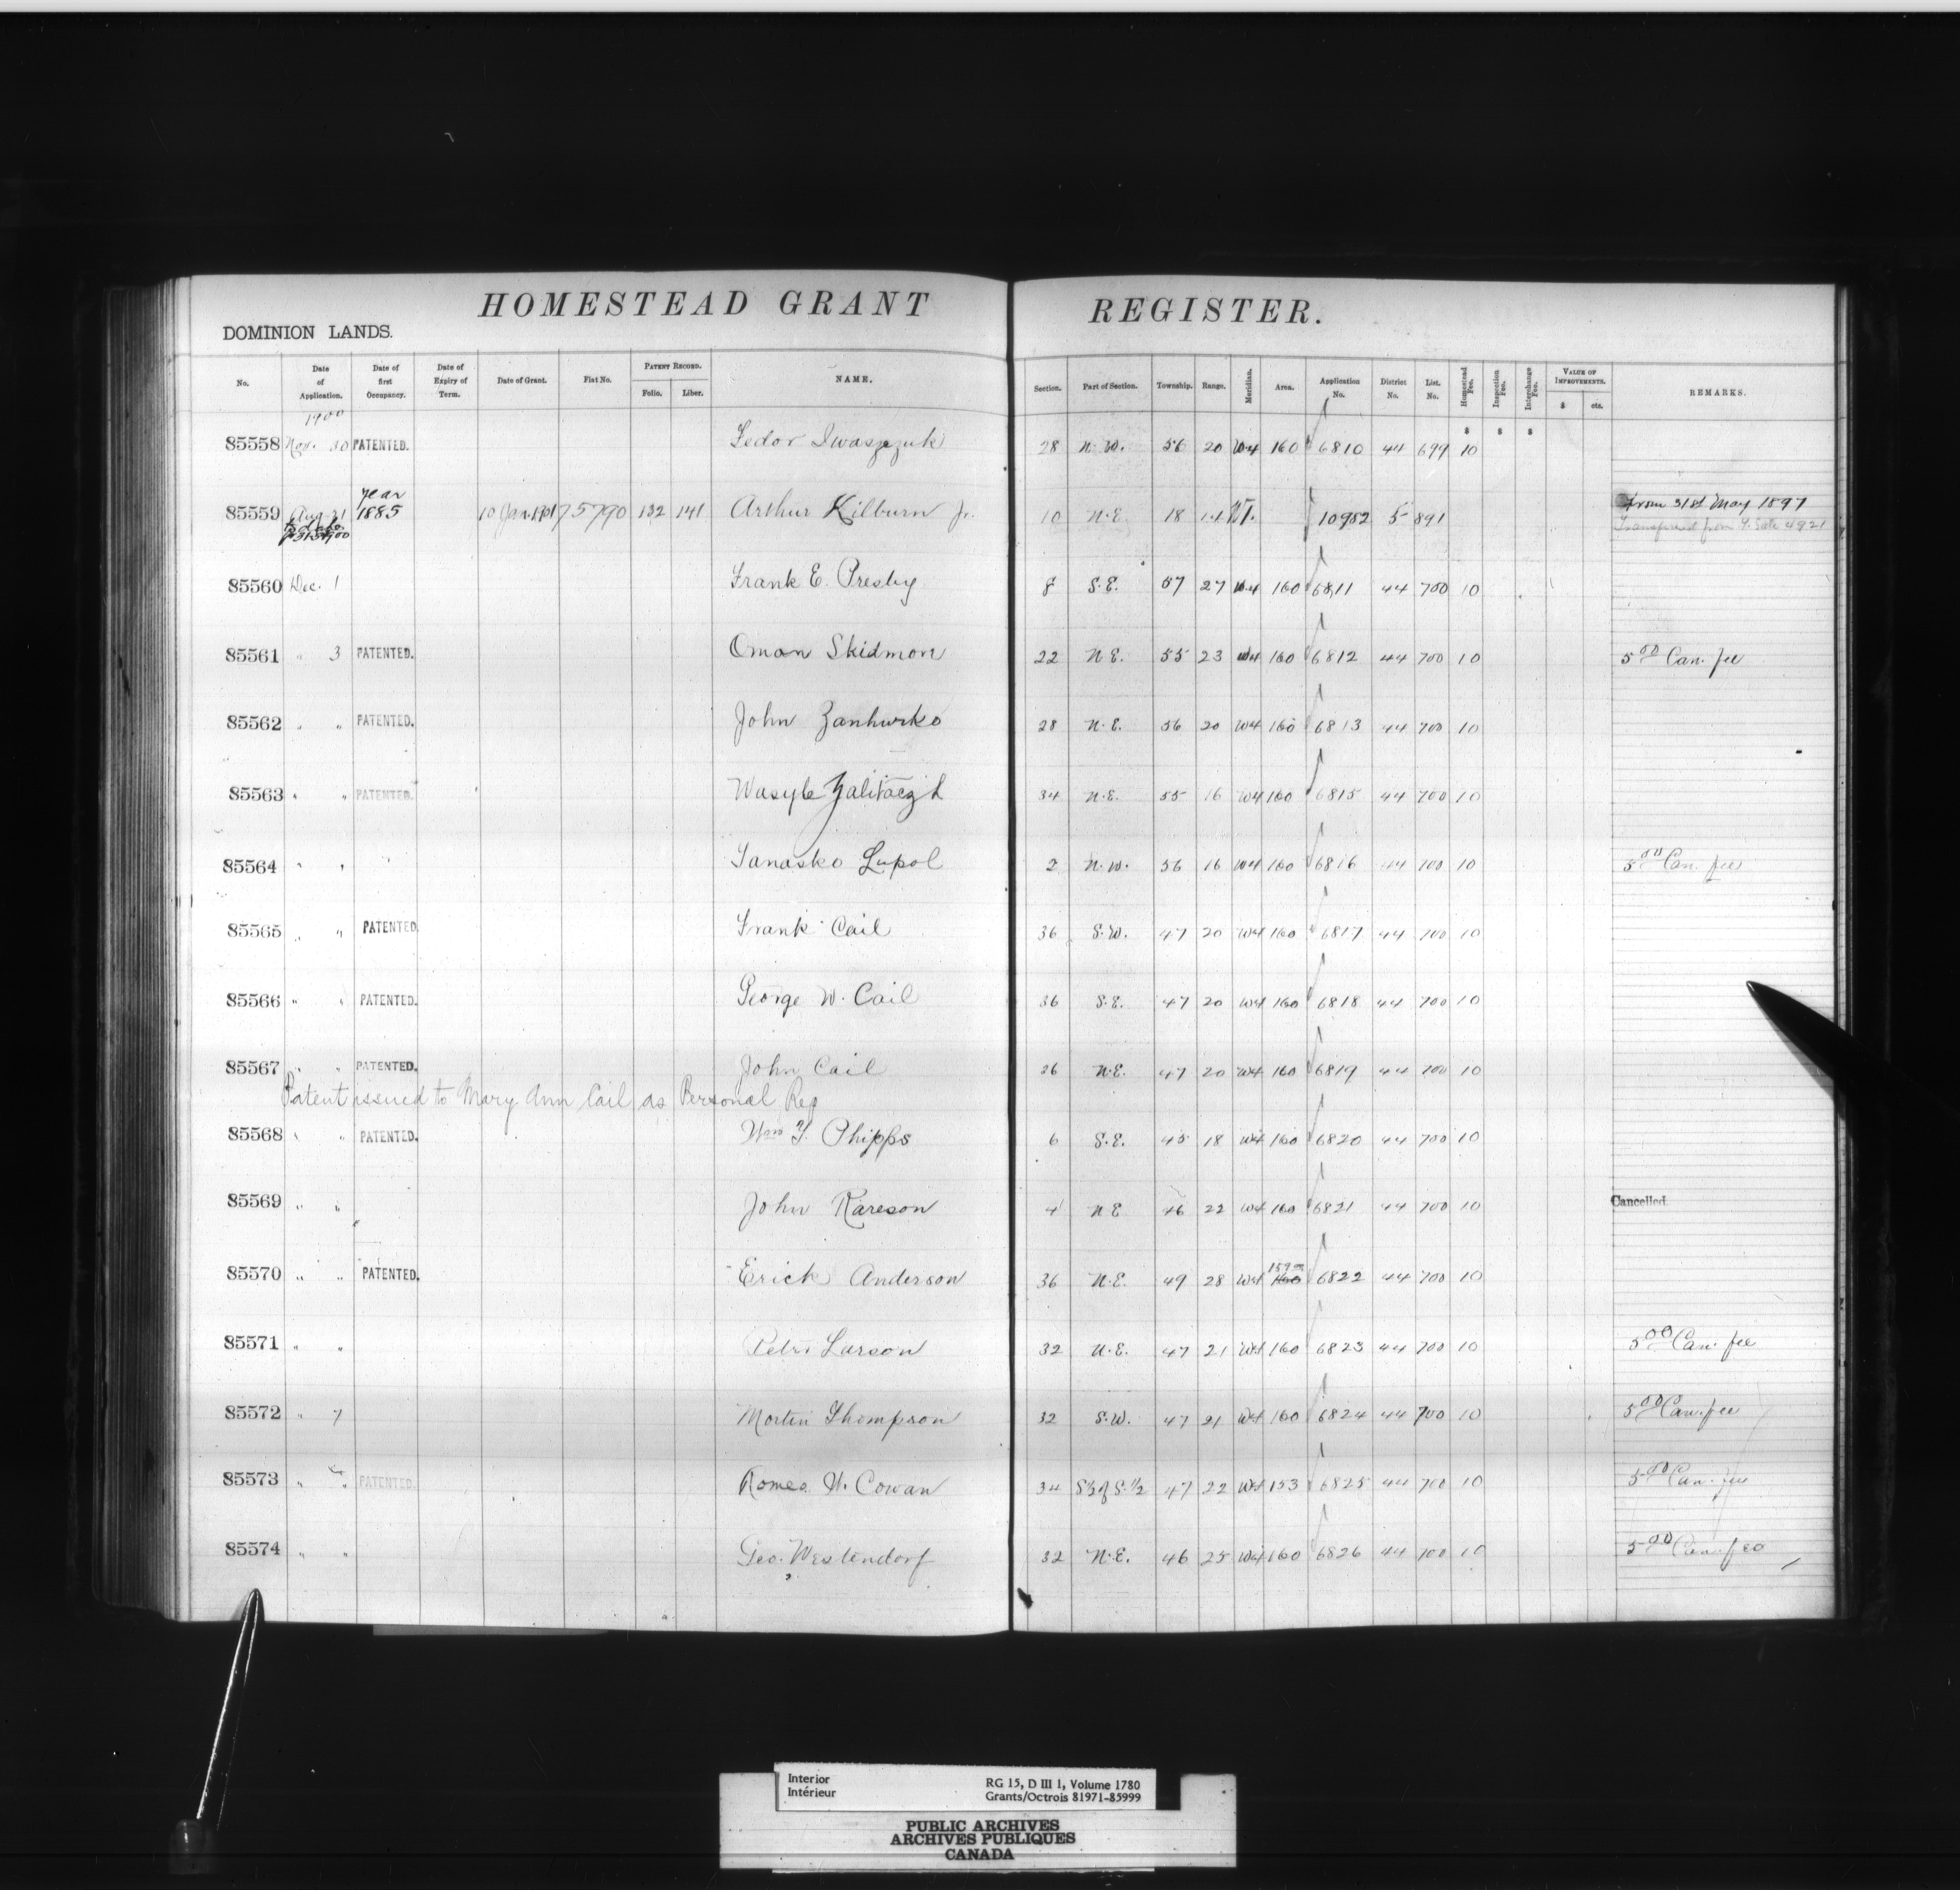 HOMESTEAD GRANT REGISTER.
DOMINION LANDS.
No. Date of Application. Date of first Occupancy. Date of Expiry of Term. Date of Grant. Fiat No. PATENT RECORD. Folio. Liber. NAME. Section. Part of Section. Township. Range. Meridian. Area. Application No. District No. List. No. Homestead Fee. Inspection Fee. Interchange Fee. VALUE OF IMPROVEMENTS. $ cts. REMARKS.
1900 $ $ $
85558 Nov. 30 PATENTED. Fedor Iwaszczuk 28 N.W. 56 20 W4 160 6810 44 699 10
85559 Aug 31 year 1885 10 Jan. 1901 75790 132 141 Arthur Kilburn Jr. 10 N.E. 18 14 W1. 10982 5 891 From 31st May 1897
Transferred from 4921
85560 Dec. 1 Frank E. Presby 8 S.E. 57 27 W4 160 6811 44 700 10
85561 " 3 PATENTED. Oman Skidmore 22 N.E. 55 23 W4 160 6812 44 700 10 5 00 Can. fee
85562 " " PATENTED. John Zanhurko 28 N.E. 56 20 W4 160 6813 44 700 10
85563 " " PATENTED. Wasyle 34 N.E. 55 16 W4 160 6815 44 700 10
85564 " " Tanasko Lupol 2 N.W. 56 16 W4 160 6816 44 700 10 5 00 Can. fee
85565 " " PATENTED. Frank Cail 36 S.W. 47 20 W4 160 6817 44 700 10
85566 " " PATENTED. George W. Cail 36 S.E. 47 20 W4 160 6818 44 700 10
85567 " " PATENTED. John Cail 26 N.E. 47 20 W4 160 6819 44 700 10
Patent issued to Mary Ann Cail as Personal Rep
85568 " " PATENTED. Wm T. Phipps 6 S.E. 45 18 W4 160 6820 44 700 10
85569 " " John Rareson 4 N.E 46 22 W4 160 6821 44 700 10 Cancelled.
85570 " " PATENTED. Erick Anderson 36 N.E. 49 28 W4 159 160 6822 44 700 10
85571 " " Peter Larson 32 N.E. 47 21 W4 160 6823 44 700 10 5 00 Can. fee
85572 " 7 Martin Thompson 32 S.W. 47 21 W4 160 6824 44 700 10 5 00 Can. fee
85573 " " PATENTED. Romeo H. Cowan 34 S½ of S.½ 47 22 W4 153 6825 44 700 10 5 00 Can. fee
85574 " " Geo. Westendorf 32 N.E. 46 25 W4 160 6826 44 700 10 5 00 Can. fee
Interior RG 15, D III 1, Volume 1780
Intérieur Grants/Octrois 81971-85999
PUBLIC ARCHIVES
ARCHIVES PUBLIQUES
CANADA